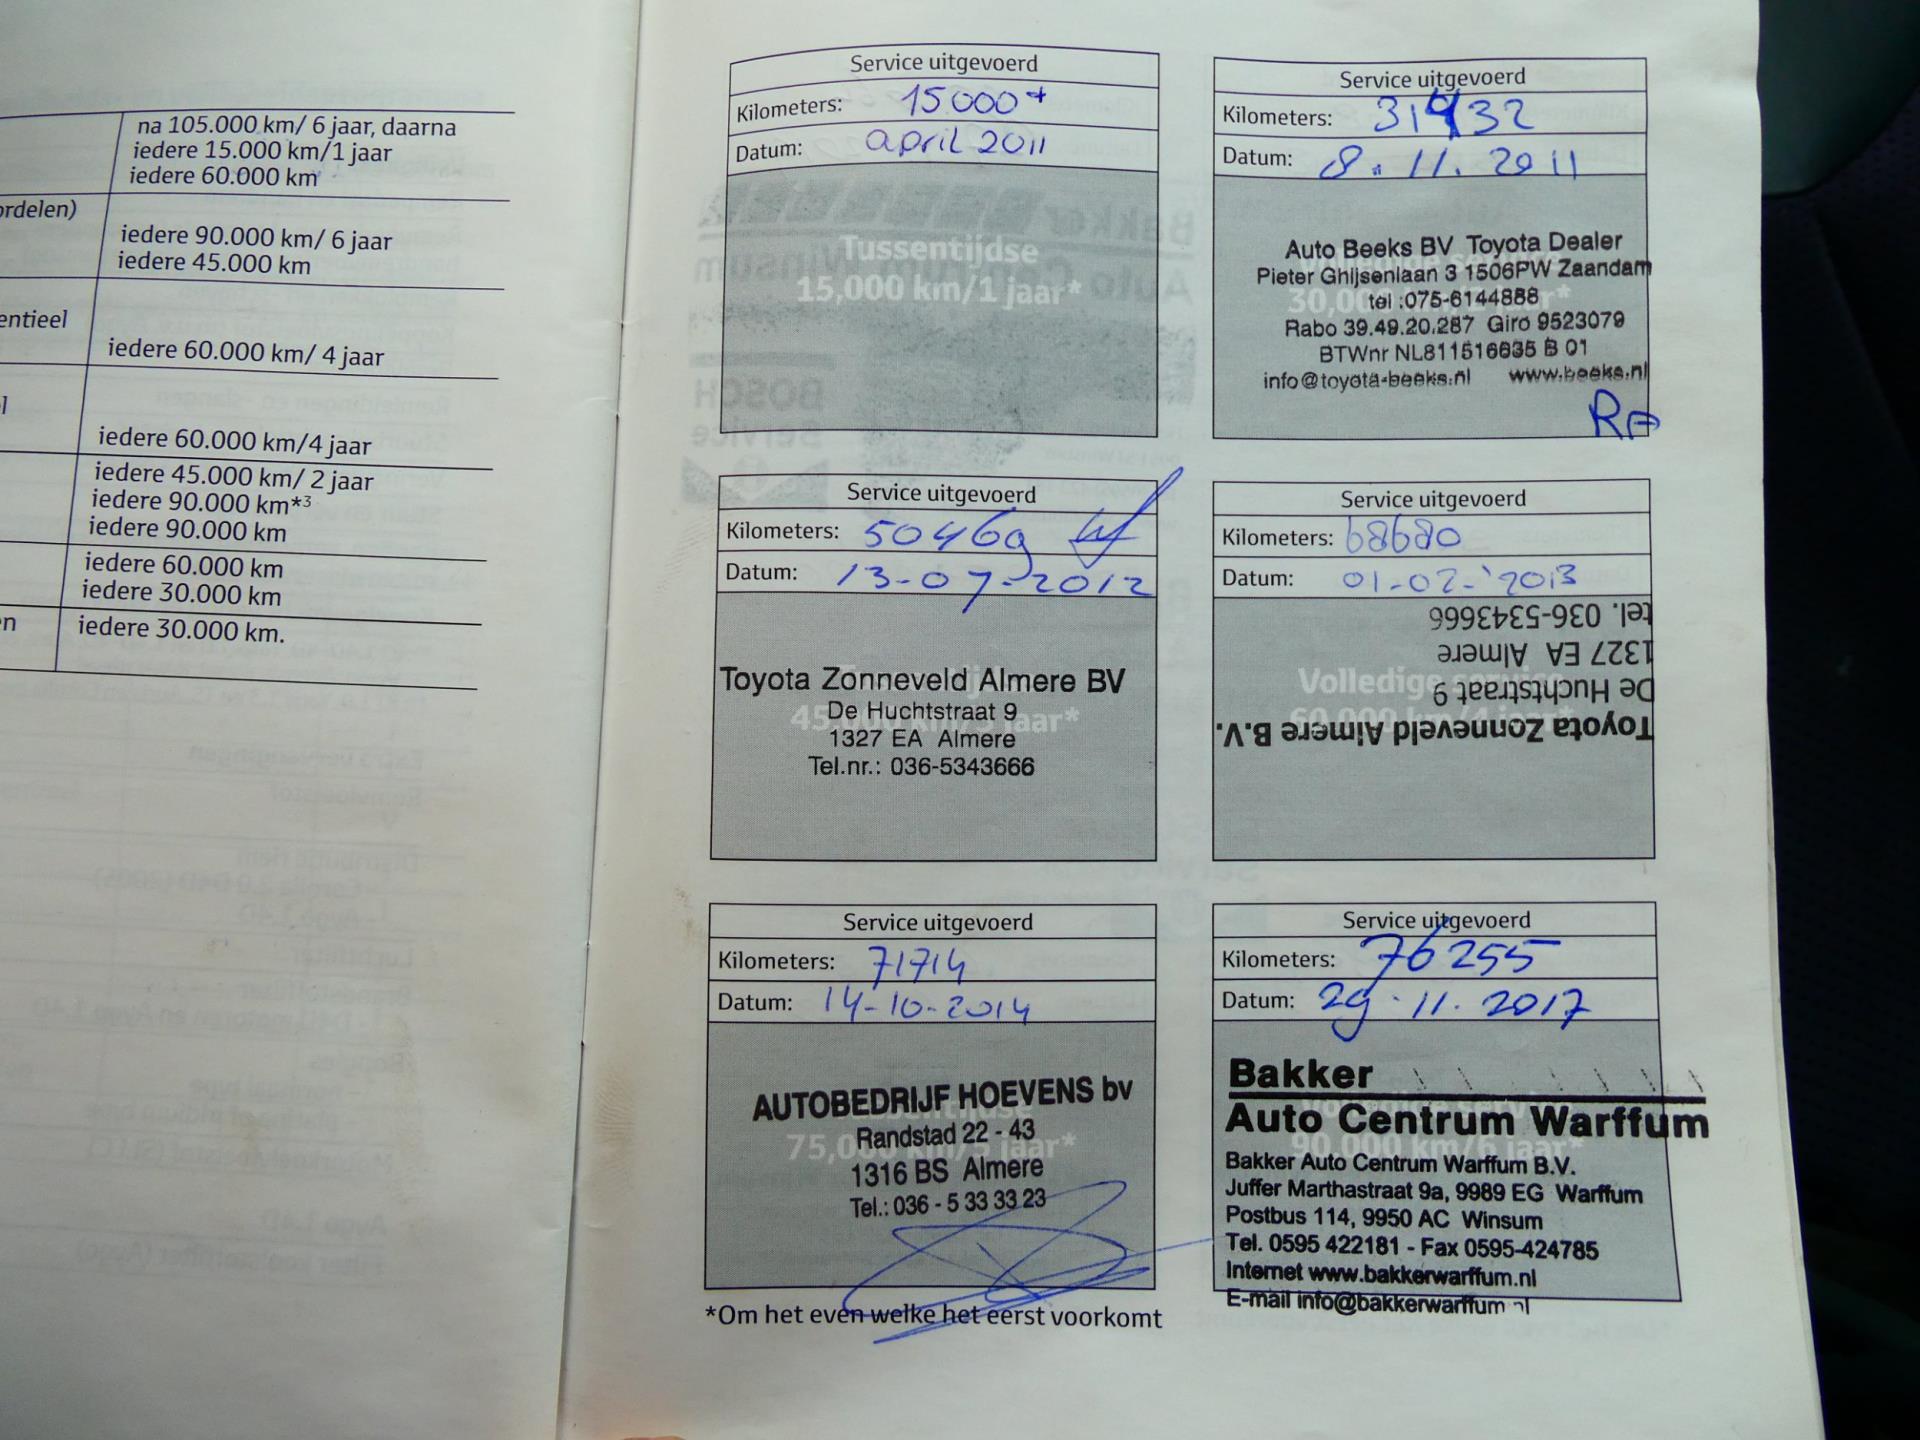 na 105.000 km/ 6 jaar, daarna
iedere 15.000 km/1 jaar
iedere 60.000 km
ordelen)
iedere 90.000 km/ 6 jaar
iedere 45.000 km
entieel
iedere 60.000 km/ 4 jaar
iedere 60.000 km/4 jaar
iedere 45.000 km/ 2 jaar
iedere 90.000 km*³
iedere 90.000 km
iedere 60.000 km
iedere 30.000 km
iedere 30.000 km.
Service uitgevoerd
Kilometers: 15000+
Datum: april 2011
Tussentijdse
15,000 km/1 jaar*
Service uitgevoerd
Kilometers: 31432
Datum: 8.11.2011
Auto Beeks BV Toyota Dealer
Pieter Ghijsenlaan 3 1506PW Zaandam
tel :075-6144888
30,000 km/2 jaar*
Rabo 39.49.20.287 Giro 9523079
BTWnr NL811516635 B 01
info@toyota-beeks.nl www.beeks.nl
RA
Service uitgevoerd
Kilometers: 50469
Datum: 13-07-2012
Toyota Zonneveld Almere BV
De Huchtstraat 9
45,000 km/3 jaar*
1327 EA Almere
Tel.nr.: 036-5343666
Service uitgevoerd
Kilometers: 68680
Datum: 01-02-'2013
Toyota Zonneveld Almere B.V.
De Huchtstraat 9
1327 EA Almere
tel. 036-5343666
Volledige service
60,000 km/4 jaar*
Service uitgevoerd
Kilometers: 71714
Datum: 14-10-2014
AUTOBEDRIJF HOEVENS bv
Tussentijdse
Randstad 22 - 43
75,000 km/5 jaar*
1316 BS Almere
Tel.: 036 - 5 33 33 23
Service uitgevoerd
Kilometers: 76255
Datum: 29.11.2017
Bakker
Auto Centrum Warffum
Volledige service
90,000 km/6 jaar*
Bakker Auto Centrum Warffum B.V.
Juffer Marthastraat 9a, 9989 EG Warffum
Postbus 114, 9950 AC Winsum
Tel. 0595 422181 - Fax 0595-424785
Internet www.bakkerwarffum.nl
E-mail info@bakkerwarffum.nl
*Om het even welke het eerst voorkomt